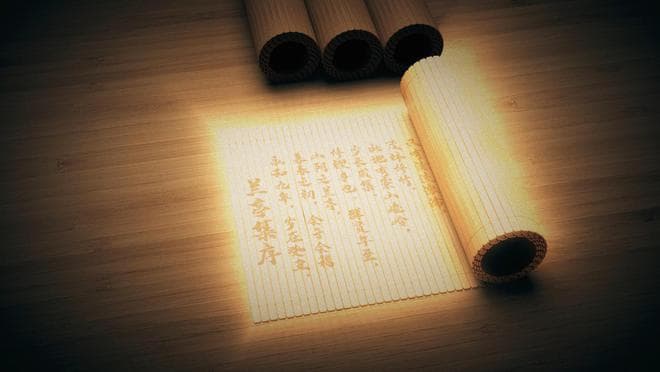 兰亭集序
永和九年，岁在癸丑，
暮春之初，会于会稽
山阴之兰亭，
修禊事也。群贤毕至，
少长咸集。
此地有崇山峻岭，
茂林修竹，